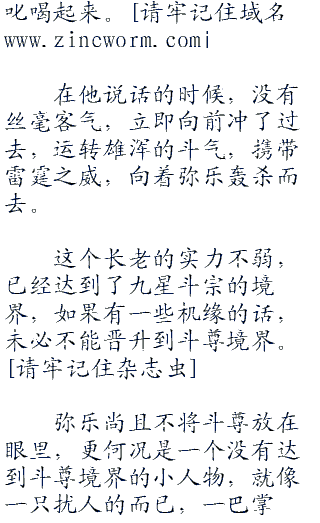 叱喝起来。[请牢记住域名
www.zincworm.com|
在他说话的时候，没有
丝毫客气，立即向前冲了过
去，运转雄浑的斗气，携带
雷霆之威，向着弥乐轰杀而
去。
这个长老的实力不弱，
已经达到了九星斗宗的境
界，如果有一些机缘的话，
未必不能晋升到斗尊境界。
[请牢记住杂志虫]
弥乐尚且不将斗尊放在
眼里，更何况是一个没有达
到斗尊境界的小人物，就像
一只扰人的而已，一巴掌